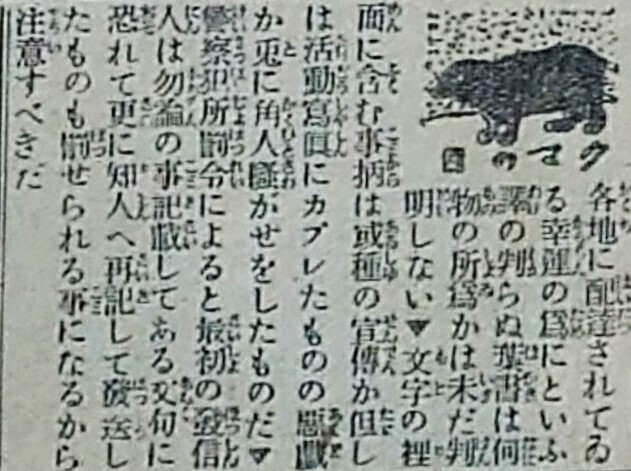 クマの図
各地に配達されてゐ
る幸運の為にといふ
譯の判らぬ葉書は何
物の所為かは未だ判
明しない▼文字の裡
面に含む事柄は或種の宣傳か但し
は活動寫眞にカブレたものの悪戯
か兎に角人騒がせをしたものだ▼
警察犯所罰令によると最初の發信
人は勿論の事記載してある文句に
恐れて更に知人へ再記して發送し
たものも罰せられる事になるから
注意すべきだ